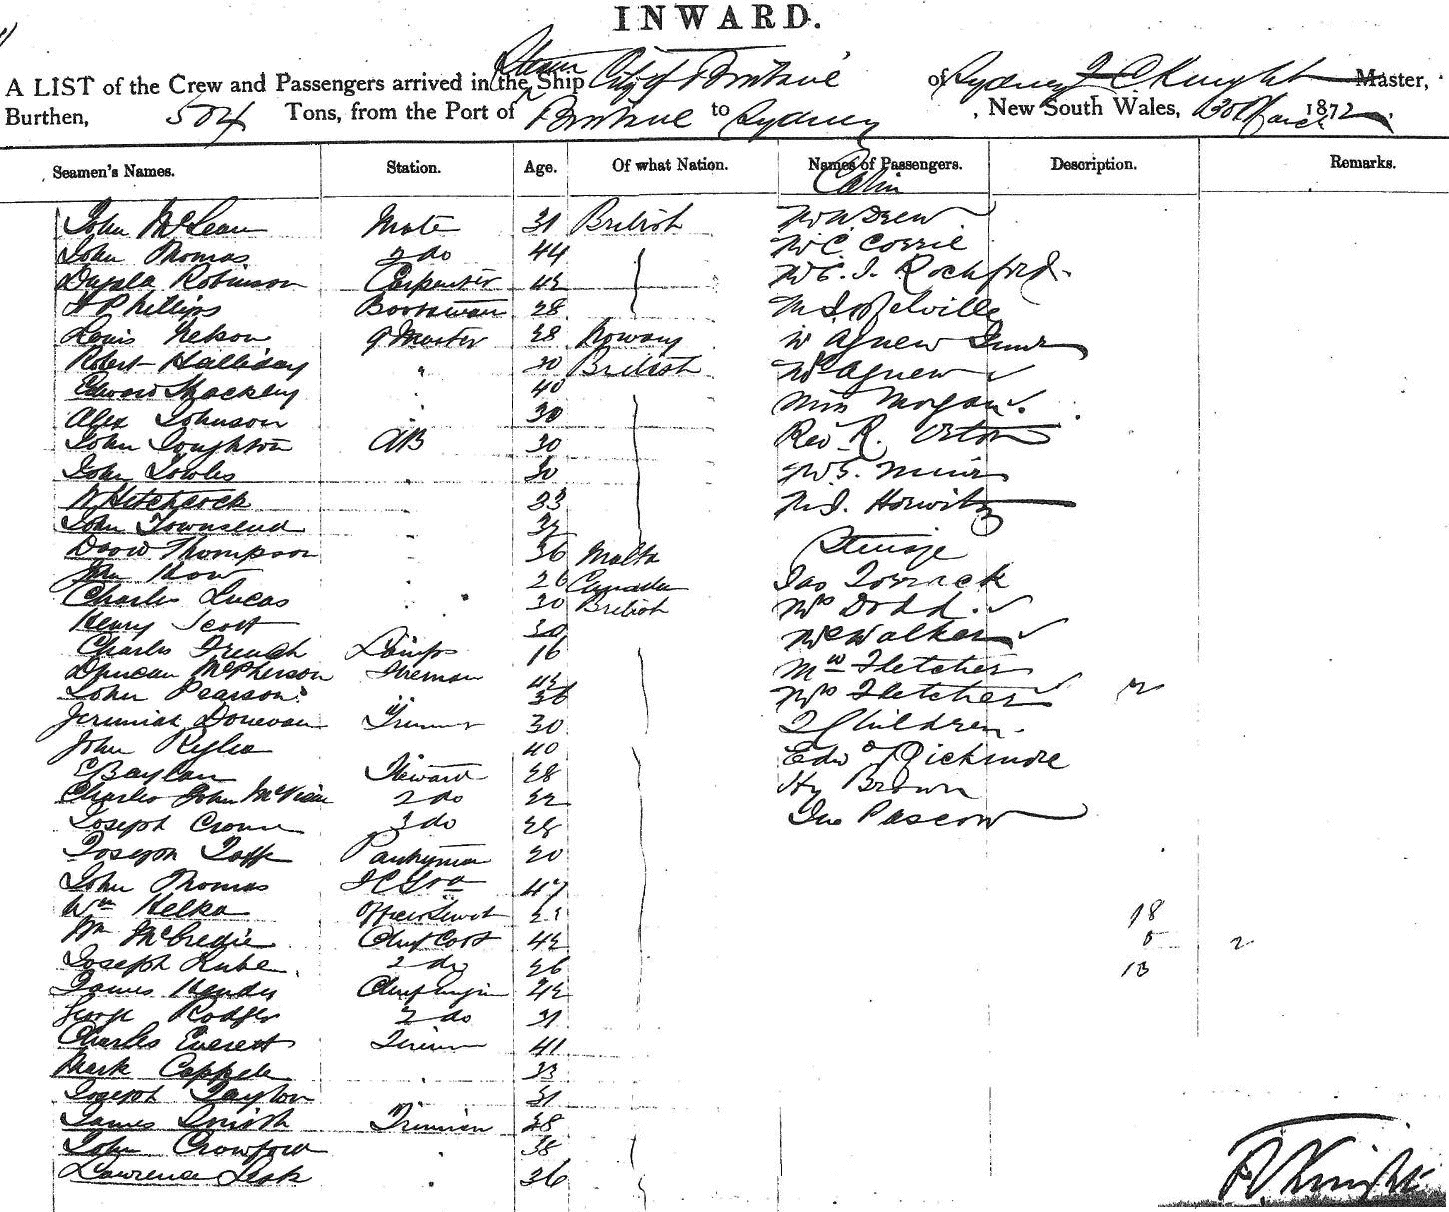 INWARD.
A LIST of the Crew and Passengers arrived in the Steam Ship City of Brisbane of Sydney Knight Master,
Burthen, 504 Tons, from the Port of Brisbane to Sydney, New South Wales, 30 March 1872
Seamen's Names. Station. Age. Of what Nation. Names of Passengers. Description. Remarks.
Cabin
John McLean Mate 31 British Mr W Drew
John Thomas 2 do 44 Mr C. Corrie
Robinson Carpenter 42 Mr C. J. Rochford
Phillips Boatswain 28 Melville
Louis Nelson Q Master 28 Norway Agnew Junr
Robert Halliday " 30 British Agnew
Edward Mackley 40 Miss Morgan
Alex Johnson 30
John Loughton AB 30 Rev R.
John Towles 30
W Hitchcock 33 Horwitz
John Townsend 32
David Thompson 36 Malta Steerage
John 26 Canada Jas Torrack
Charles Lucas 30 British Mrs Dodd
Henry Scott 30 Walker
Charles French Lamps 16
Duncan McPherson Fireman 42 Fletcher
John Pearson " 36 Mrs Fletcher 2
Jeremiah Donevan Trimmer 30 2 Children
John 40 Edwd Pickmore
Baylan Steward 28 Hy Brown
Charles John 2 do 22
Joseph Crown 3 do 28 Jno Pascow
Joseph Taffe Pantryman 20
John Thomas 47
Wm Kelka Officers Servt 18
Wm McCredie Chief Cook 42 5 2
Joseph Kube 2 do 26 13
James Chief Engin 42
George Rodger 2 do 31
Charles Everett Fireman 41
Mark Cappele 33
Joseph Taylor 31
James Smith Trimmer 28
John Crawford 38
Lawrence Lesk 36
Knight